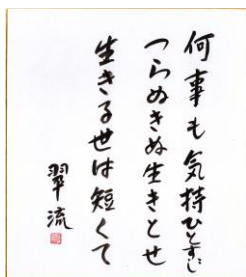 何事も気持ひとすじ
つらぬきぬ生きとせ
生きる世は短くて
翠流